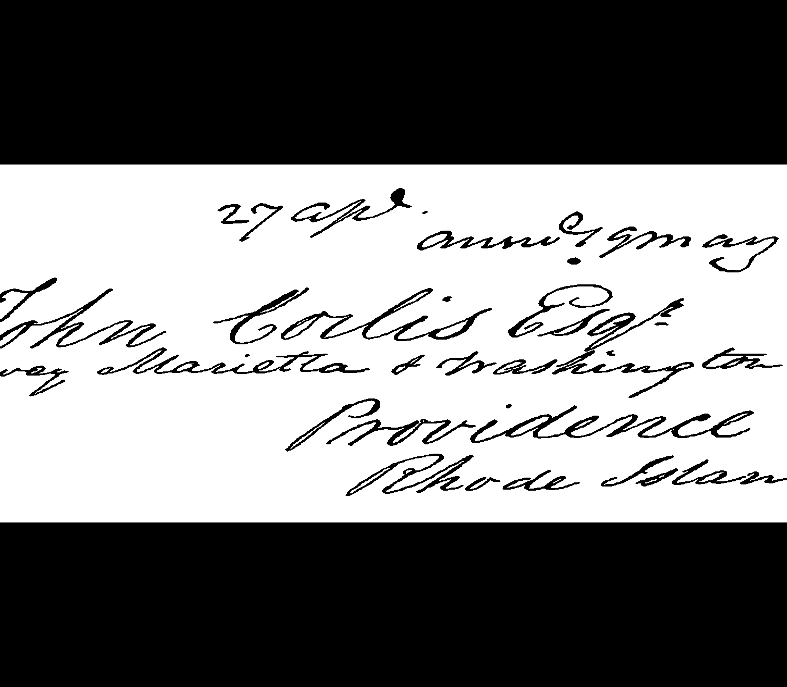 27 apl.
annd. 9 may
John Corlis Esqr.
way Marietta & Washington
Providence
Rhode Islan